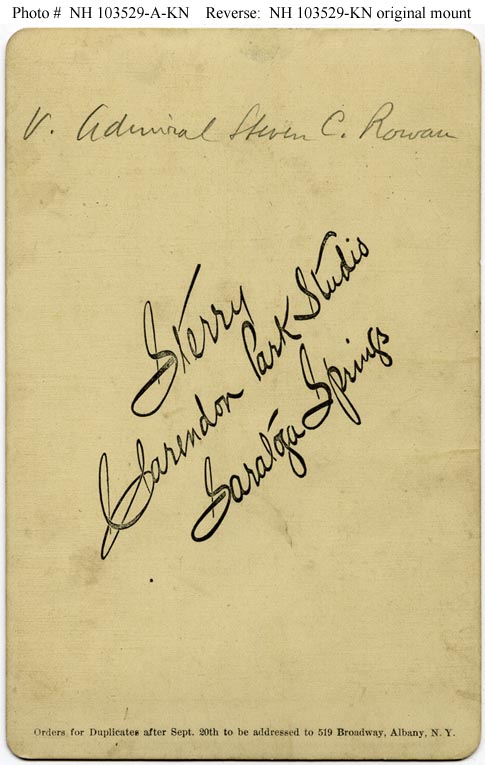 Photo # NH 103529-A-KN Reverse: NH 103529-KN original mount
V. Admiral Steven C. Rowan
Sterry
Clarendon Park Studio
Saratoga Springs
Orders for Duplicates after Sept. 20th to be addressed to 519 Broadway, Albany, N. Y.